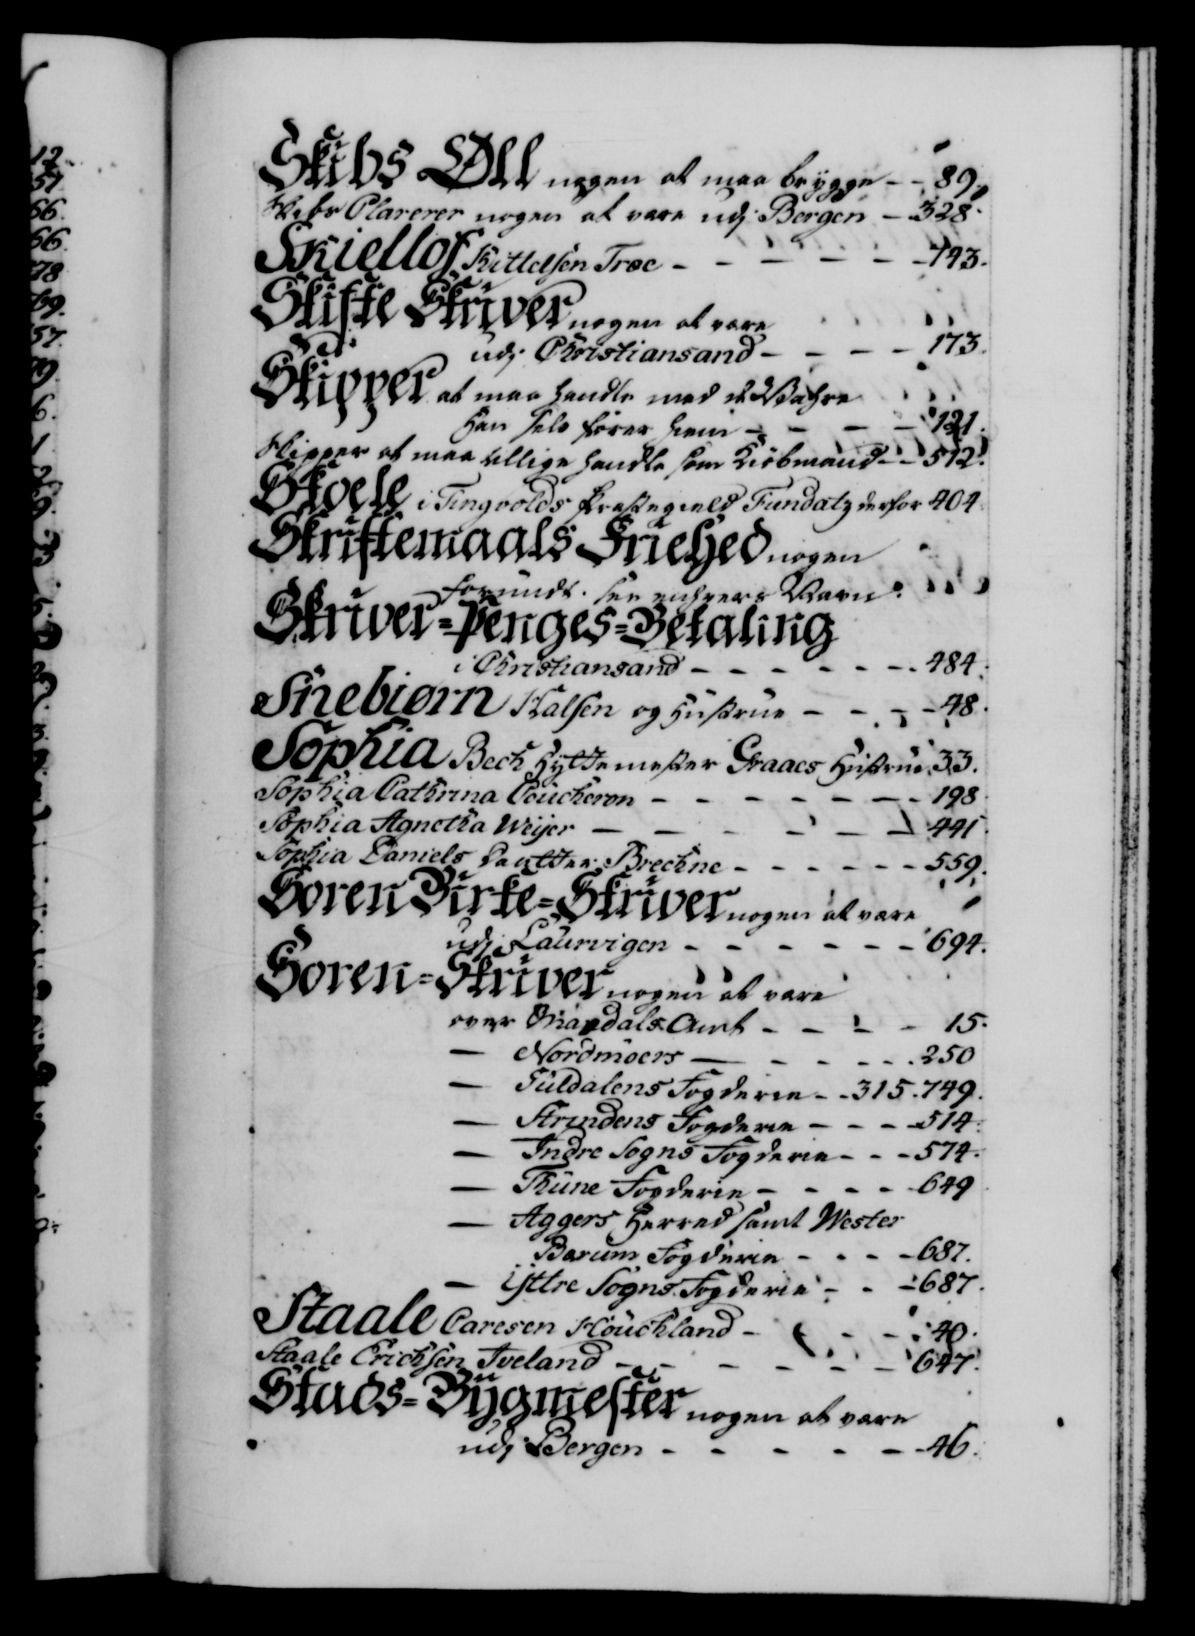 Skibs Øll nogen at maa brygge - - 89.
Skibs Clarerer nogen at være udj Bergen - 328.
Skiellof Kittelsen Træe - - - - - - 743.
Skifte Skriver nogen at være
udj Christiansand - - - - 173.
Skipper at maa handle med de Wahre
han selv fører hiem - - - - 121.
Skipper at maa tillige handle som Kiöbmand - - 512.
Skoele i Tingvolds Præstegield Fundatz derfor 404
Skriftemaals Friehed nogen
forundt. see enhvers Navn.
Skriver=Penges=Betaling
i Christiansand - - - - - - - 484.
Snebiørn Halsen og Hustrue - - - - 48.
Sophia Bech Hyttemester Graaes Hustrue 33.
Sophia Cathrina Coucheron - - - - - - - 198
Sophia Agnetha Weyer - - - - - - 441.
Sophia Daniels Daatter Brechne - - - - - - 559.
Soren Birke=Skriver nogen at være
udj Laurvigen - - - - - - - 694.
Soren=Skriver nogen at være
over Mandals Amt - - - - 15.
— Nordmöers — - - - - 250
— Guldalens Fogderie - - 315. 749.
— Strindens Fogderie - - - - 514.
— Indre Sogns Fogderie - - - 574.
— Thüne Fogderie - - - - - 649
— Aggers Herred samt Wester
Barum Fogderie - - - - 687.
— Yttre Sogns Fogderie - - - 687.
Staale Caresen Houchland - - - - 40.
Staale Erichsen Tveland - - - - - - 647.
Stads=Bygmester nogen at være
udj Bergen - - - - - - 46.
12
57
66.
66.
78
69.
57.